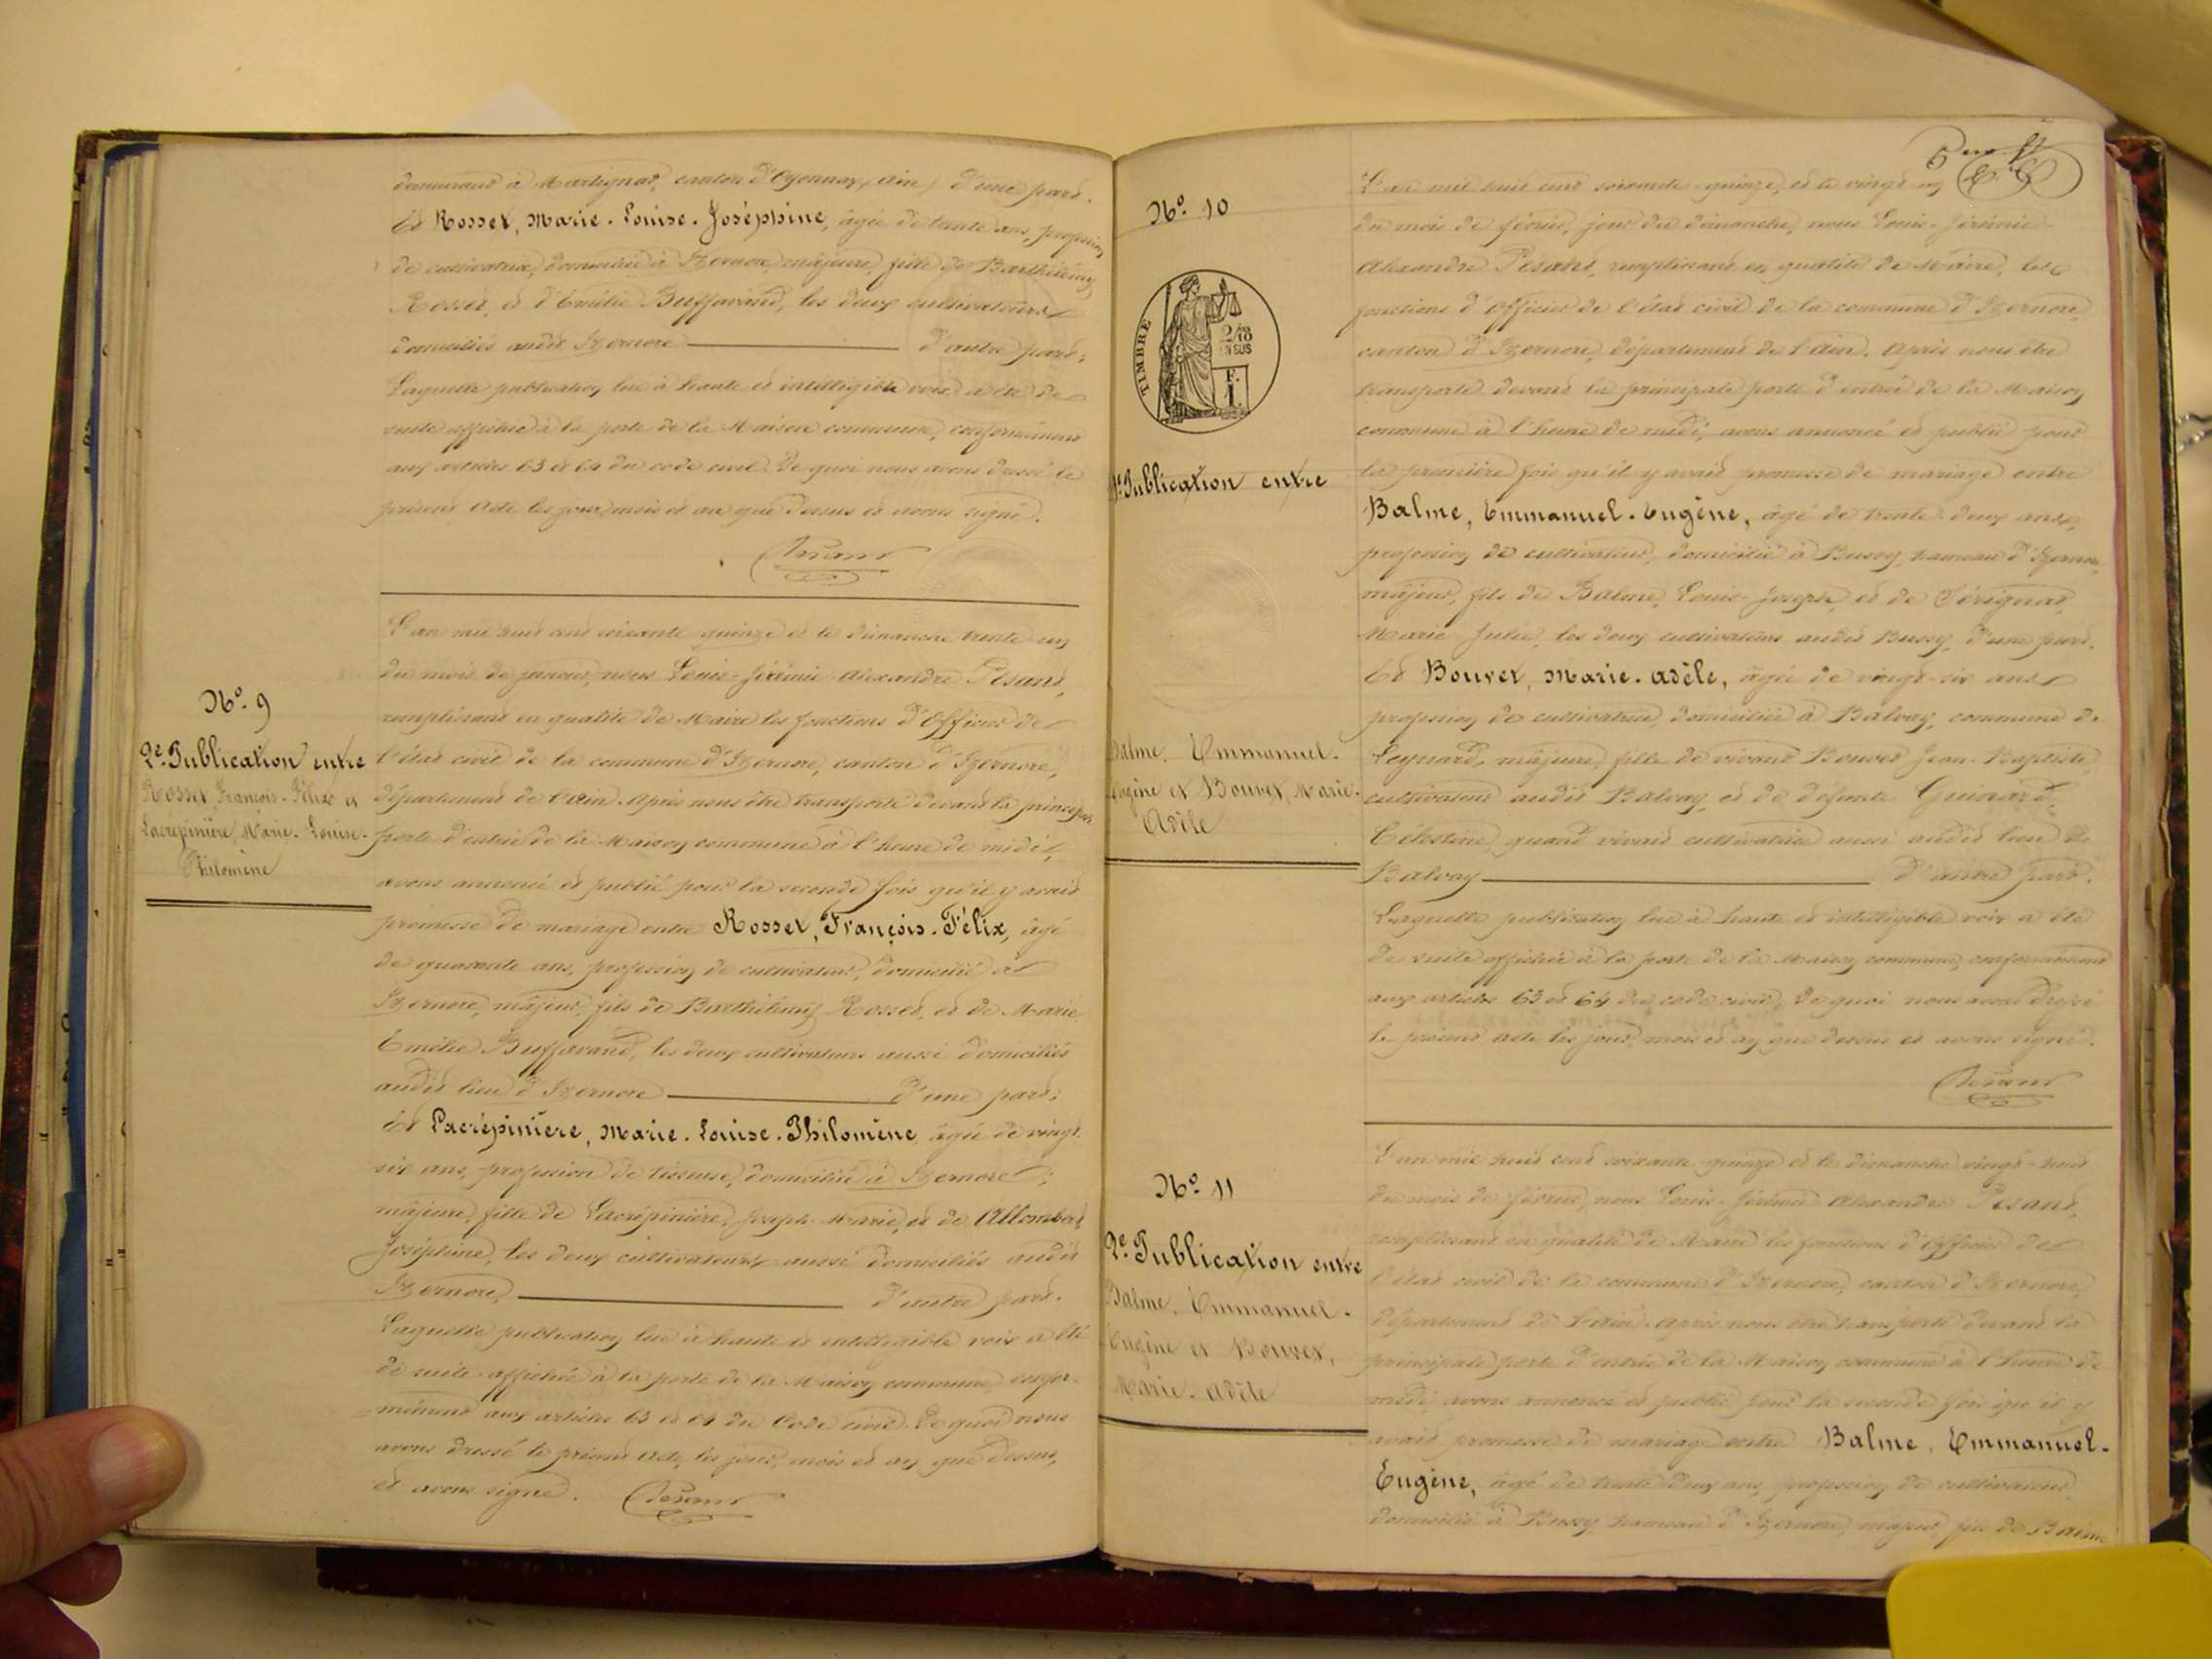 demeurant à Martignat, canton d'Oyonnax (Ain) d'une part.
Et Rosset, Marie-Louise-Joséphine, âgée de trente ans, profession
de cultivatrice, domiciliée à Izernore, majeure, fille de Barthélemy
Rosset, et d'Emélie Buffavand, les deux cultivateurs
domiciliés audit Izernore d'autre part;
Laquelle publication lue à haute et intelligible voix, a été de
suite affichée à la porte de la Maison commune, conformément
aux articles 63 et 64 du code civil. De quoi nous avons dressé le
présent Acte les jour, mois et an que dessus et avons signé.
Pesant
Nº. 9
2e. Publication entre
Rosset, François-Félix et
Lacrépinière, Marie-Louise-
Philomène
L'an mil huit cent soixante quinze et le dimanche trente un
du mois de janvier, nous Louis-Jérémie-Alexandre Pesant,
remplissant en qualité de Maire les fonctions d'Officier de
l'état civil de la commune d'Izernore, canton d'Izernore,
département de l'Ain. Après nous être transporté devant la principale
porte d'entrée de la Maison commune à l'heure de midi,
avons annoncé et publié pour la seconde fois qu'il y avait
promesse de mariage entre Rosset, François-Félix, âgé
de quarante ans, profession de cultivateur, domicilié à
Izernore, majeur, fils de Barthélemy Rosset, et de Marie
Emélie Buffavand, les deux cultivateurs aussi domiciliés
audit lieu d'Izernore d'une part;
Et Lacrépinière, Marie-Louise-Philomène, âgée de vingt
six ans, profession de tisseuse, domiciliée à Izernore;
majeure, fille de Lacrépinière, Joseph-Marie, et de Allombert
Joséphine, les deux cultivateurs, aussi domiciliés audit
Izernore, d'autre part.
Laquelle publication lue à haute et intelligible voix a été
de suite affichée à la porte de la Maison commune, confor-
mément aux articles 63 et 64 du Code civil. De quoi nous
avons dressé le présent Acte, les jour, mois et an que dessus,
et avons signé. Pesant
Nº. 10
TIMBRE
2/10
EN SUS
1e. Publication entre
Balme, Emmanuel-
Eugène et Bouvet, Marie-
Adèle
L'an mil huit cent soixante-quinze, et le vingt un
du mois de février, jour du dimanche, nous Louis-Jérémie-
Alexandre Pesant, remplissant en qualité de Maire, les
fonctions d'Officier de l'état civil de la commune d'Izernore,
canton d'Izernore, département de l'Ain. Après nous être
transporté devant la principale porte d'entrée de la Maison
commune à l'heure de midi, avons annoncé et publié pour
la première fois qu'il y avait promesse de mariage entre
Balme, Emmanuel-Eugène, âgé de trente deux ans,
profession de cultivateur, domicilié à Bussy, hameau d'Izernore,
majeur, fils de Balme, Louis-Joseph, et de Sérignat,
Marie-Julie, les deux cultivateurs audit Bussy, d'une part.
Et Bouvet, Marie-Adèle, âgée de vingt-six ans
profession de cultivatrice, domiciliée à Balvay, commune de
Leynard, majeure, fille de vivant Bouvet Jean-Baptiste,
cultivateur audit Balvay, et de défunte Guinard
Célestine, quand vivait cultivatrice aussi audit lieu de
Balvay d'autre part.
Laquelle publication lue à haute et intelligible voix a été
de suite affichée à la porte de la Maison commune, conformément
aux articles 63 et 64 du code civil, De quoi nous avons dressé
le présent acte les jour, mois et an que dessus et avons signé.
Pesant
Nº. 11
2e. Publication entre
Balme, Emmanuel-
Eugène et Bouvet,
Marie-Adèle
L'an mil huit cent soixante-quinze et le dimanche vingt-huit
du mois de février, nous Louis-Jérémie Alexandre Pesant,
remplissant en qualité de Maire les fonctions d'Officier de
l'état civil de la commune d'Izernore, canton d'Izernore,
département de l'Ain. Après nous être transporté devant la
principale porte d'entrée de la Maison commune à l'heure de
midi, avons annoncé et publié pour la seconde fois qu'il y
avait promesse de mariage entre Balme, Emmanuel-
Eugène, âgé de trente deux ans, profession de cultivateur,
domicilié à Bussy, hameau d'Izernore, majeur, fils de Balme